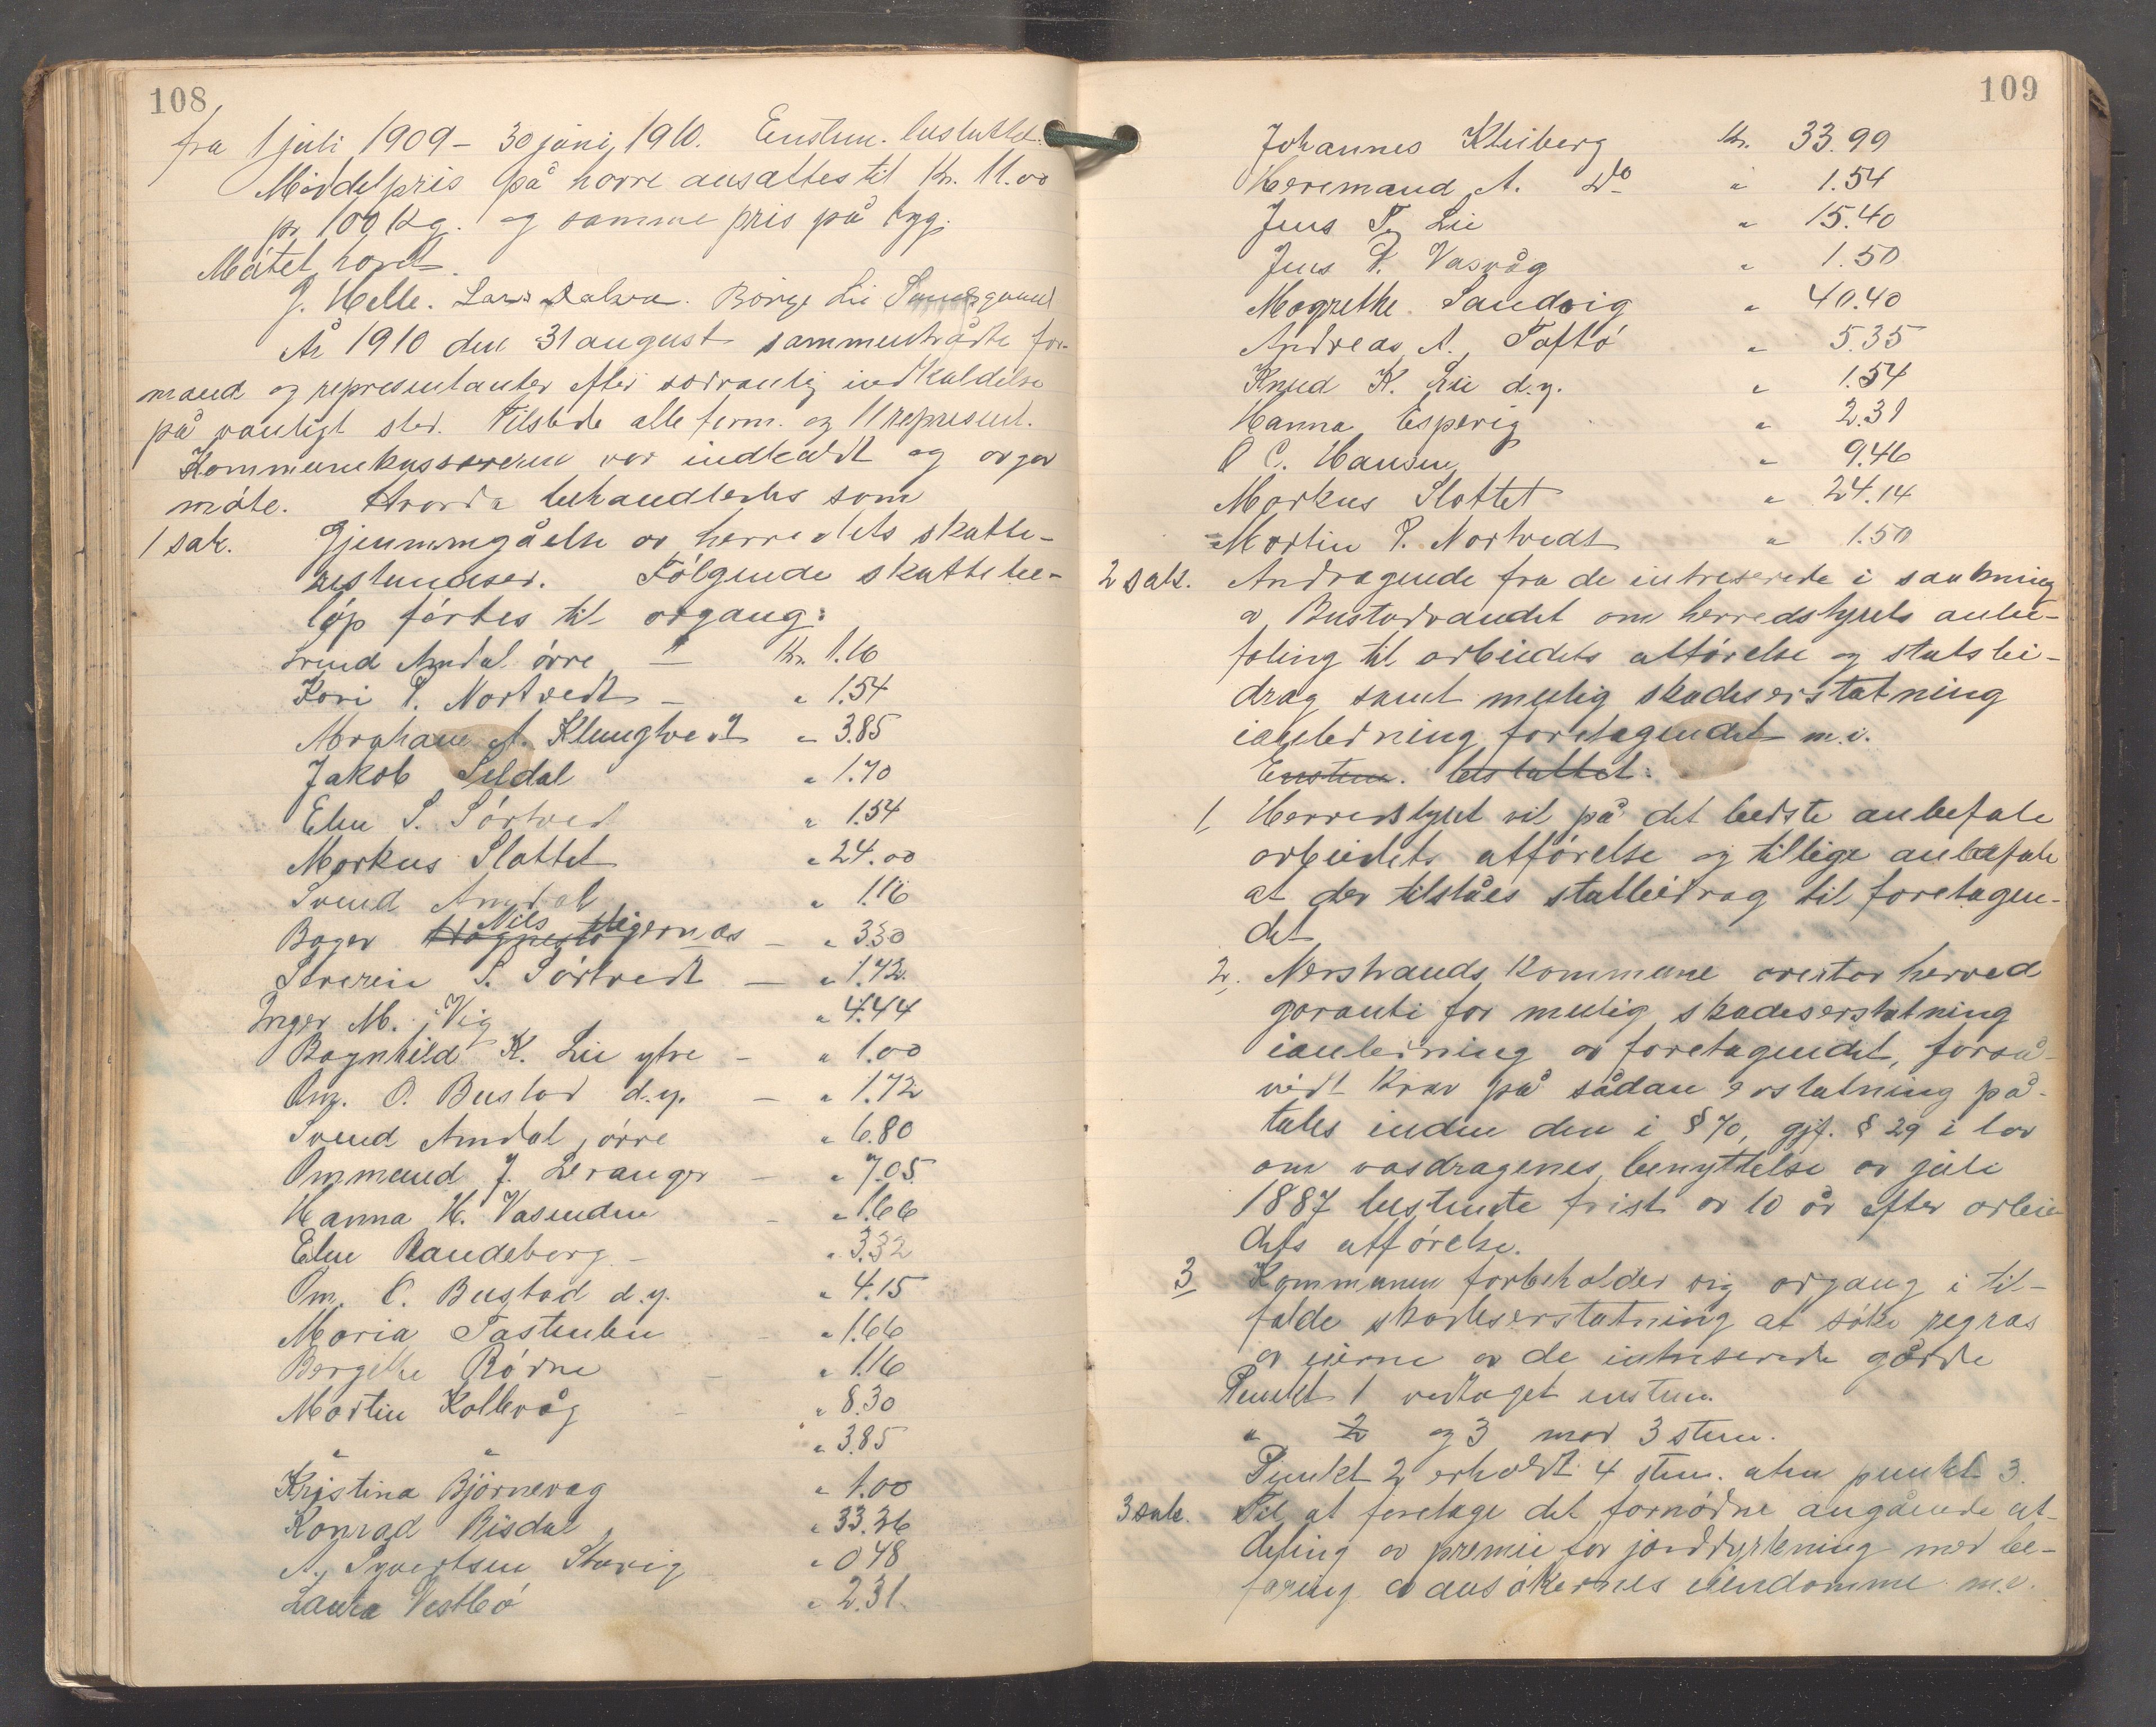 108
fra 1 juli 1909 – 30 juni 1910. Enstem. besluttet:
Middelpris på havre ansattes til Kr. 11.00
pr. 100 kg. og samme pris på byg.
Mötet hævet.
J. Helle. Lars Dalva. Börge Lie
År 1910 den 31 august sammentrådte for-
mænd og repræsentanter efter sedvanlig indkaldelse
på vanligt sted. Tilstede alle form. og 11 represent.
Kommunekassereren var indkaldt og avgav
möte. Hvorda behandledes som
1 sak. Gjennemgåelse av herredets skatte-
restancer. Fölgende skattebe-
löp förtes til avgang:
Svend Amdal övre — Kr. 1.16
Kari P. Nortvedt — " 1.54
Abraham A. Klungtvedt " 3.85
Jakob Seldal " 1.70
Elen S. Sörtved " 1.54
Markus Slottet " 24.00
Svend Amdal " 1.16
Bager Nils Hegernæs — " 3.30
Severin S. Sörtvedt — " 1.72
Inger M. Vig " 4.44
Ragnhild K. Lie ytre — " 1.00
Om. O. Bustad d.y. — " 1.72
Svend Amdal övre " 6.80
Ommund J. Leranger — " 7.05
Hanna H. Vasenden — " 1.66
Elen Randeberg — " 3.32
Om. O. Bustad d.y. " 4.15
Maria Tastenben — " 1.66
Bergithe Rödne — " 1.16
Martin Kollevåg — " 8.30
" " " 3.85
Kristina Björnevag " 1.00
Konrad Risdal " 33.36
A. Syvertsen Storvig " 0.48
Laura Vestbö " 2.31
109
Johannes Kleiberg Kr. 33.99
Heremand A. Do " 1.54
Jens T. Lie " 15.40
Jens P. Vasvåg " 1.50
Magrethe Sandvig " 40.40
Andreas A. Toftö " 5.35
Knud K. Lie d.y. " 1.54
Hanna Espevig " 2.31
O C. Hansen " 9.46
Markus Slottet " 24.14
Martin P. Nortvedt " 1.50
2 sak. Andragende fra de intreserede i sænkning
av Bustadvandet om herredstyrets anbe-
faling til arbeidets utförelse og statsbi-
drag samt mulig skadeserstatning
ianledning foretagendet m.v.
Enstem. besluttet:
1, Herredstyret vil på det bedste anbefale
arbeidets utförelse og tillige anbefale
at der tilståes statbidrag til foretagen-
det
2. Nerstrands kommune overtar herved
garanti for mulig skadeserstatning
ianledning av foretagendet, forså-
vidt krav på sådan erstatning på-
tales inden den i § 70, gjf. § 29 i lov
om vasdragenes benyttelse av juli
1887 bestemte frist av 10 år efter arbei-
dets utförelse.
3 Kommunen forbeholder sig avgang i til-
fælde skadeserstatning at söke regras
av eierne av de intreserede gårde
Punkt 1 vedtaget enstem.
" 2 og 3 mod 3 stem.
Punkt 2 erholdt 4 stem. uten punkt 3.
3 sak. Til at foretage det fornödne angående ut-
deling av premie for jorddyrkning med be-
faring av ansökernes eiendomme m.v.